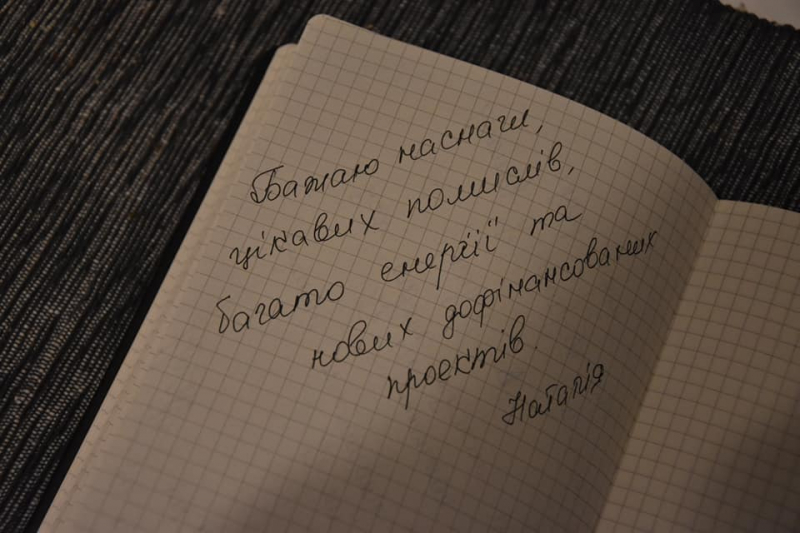 Бажаю наснаги,
цікавих помислів,
багато енергії та
нових дофінансованих
проектів.
Наталія